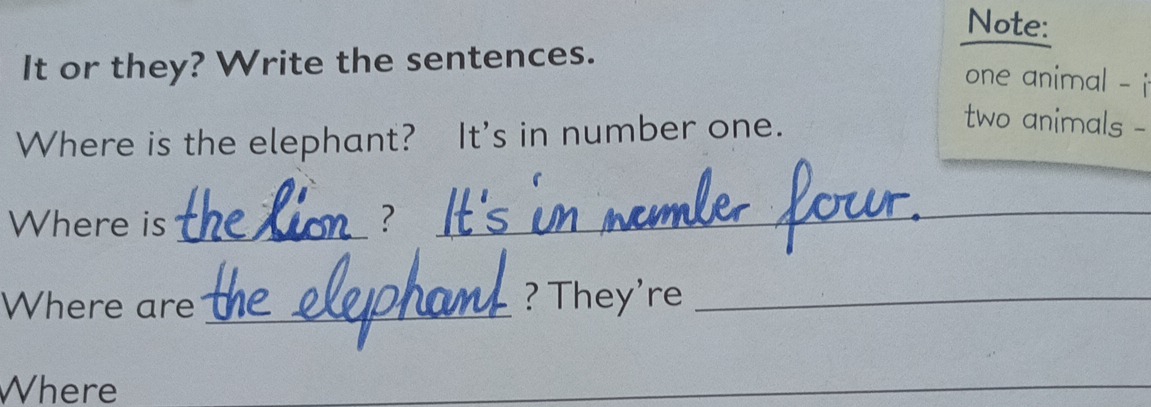 Note:
It or they? Write the sentences.
one animal -
two animals -
Where is the elephant? It's in number one.
Where is the lion ? It's in number four.
Where are the elephant ? They're
Where